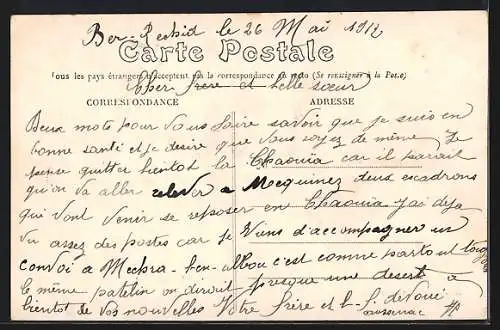 Ber-Rechid le 26 Mai 1912
Carte Postale
Tous les pays étrangers n'acceptent pas la correspondance au recto (Se renseigner à la Poste)
Cher frère et belle sœur
CORRESPONDANCE ADRESSE
Deux mots pour vous faire savoir que je suis en
bonne santé et je desire que vous soyez de même Je
pense quitter bientot la Chaouïa car il parait
qu'on va aller relever a Mequinez deux escadrons
qui vont venir se reposer en Chaouïa j'ai deja
vu assez des postes car je Viens d'accompagner un
convoi a Mechra-ben-Abbou c'est comme partout toujours
le même patelin on diroit presque une desert a
bientot de vos nouvelles Votre frère et b-f. dévoué